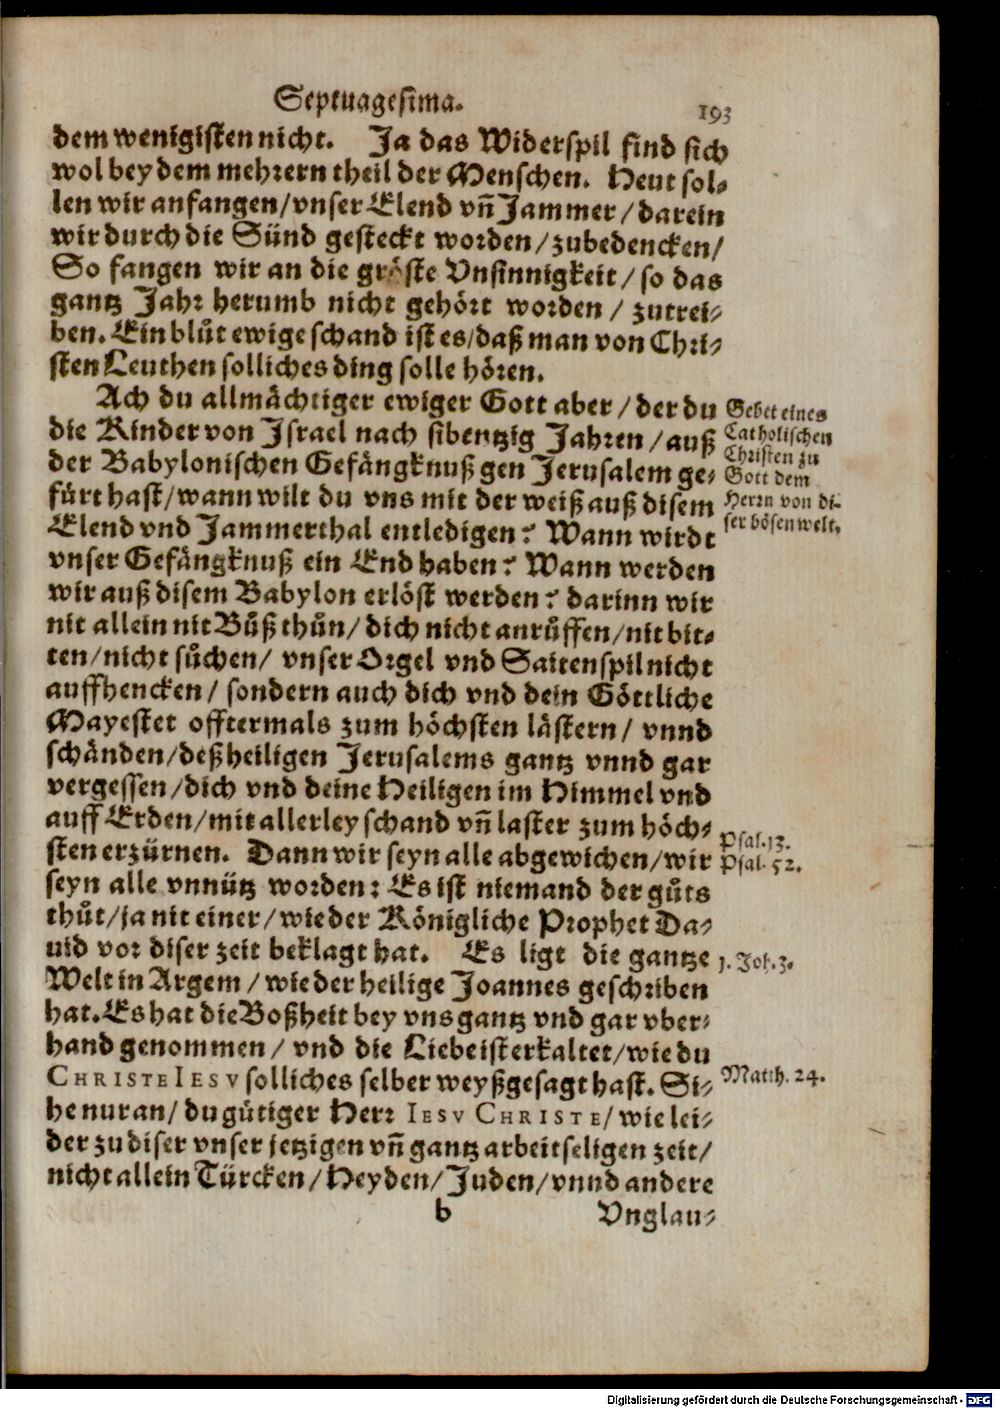 Septuagesima.
193
dem wenigisten nicht. Ja das Widerspil find sich
wol bey dem mehrern theil der Menschen. Heut sol-
len wir anfangen/vnser Elend vñ Jammer/darein
wir durch die Sünd gesteckt worden/zubedencken/
So fangen wir an die gröste Vnsinnigkeit/so das
gantz Jahr herumb nicht gehört worden/ zutrei-
ben. Ein blůt ewige schand ist es/daß man von Chri-
sten Leuthen solliches ding solle hören.
Ach du allmächtiger ewiger Gott aber/der du
die Kinder von Israel nach sibentzig Jahren/auß
der Babylonischen Gefängknuß gen Jerusalem ge-
fürt hast/wann wilt du vns mit der weiß auß disem
Elend vnd Jammerthal entledigen? Wann wirdt
vnser Gefängknuß ein End haben? Wann werden
wir auß disem Babylon erlöst werden? darinn wir
nit allein nit Bůß thůn/dich nicht anrůffen/nit bit-
ten/nicht sůchen/ vnser Orgel vnd Saitenspil nicht
auffhencken/ sondern auch dich vnd dein Göttliche
Mayestet offtermals zum höchsten lästern/ vnnd
schänden/deß heiligen Jerusalems gantz vnnd gar
vergessen/dich vnd deine Heiligen im Himmel vnd
auff Erden/mit allerley schand vñ laster zum höch-
sten erzürnen. Dann wir seyn alle abgewichen/wir
seyn alle vnnütz worden: Es ist niemand der gůts
thůt/ja nit einer/wie der Königliche Prophet Da-
uid vor diser zeit beklagt hat. Es ligt die gantze
Welt in Argem/wie der heilige Joannes geschriben
hat. Es hat die Boßheit bey vns gantz vnd gar vber-
hand genommen/ vnd die Liebe ist erkaltet/wie du
CHRISTE IESV solliches selber weyßgesagt hast. Si-
he nur an/du gütiger Herr IESV CHRISTE/wie lei-
der zu diser vnser jetzigen vñ gantz arbeitseligen zeit/
nicht allein Türcken/Heyden/Juden/vnnd andere
b
Vnglau-
Gebet eines
Catholischen
Christen zu
Gott dem
Herrn von di-
ser bösen welt.
Psal. 13.
Psal. 52.
1. Joh. 3.
Matth. 24.
Digitalisierung gefördert durch die Deutsche Forschungsgemeinschaft - DFG